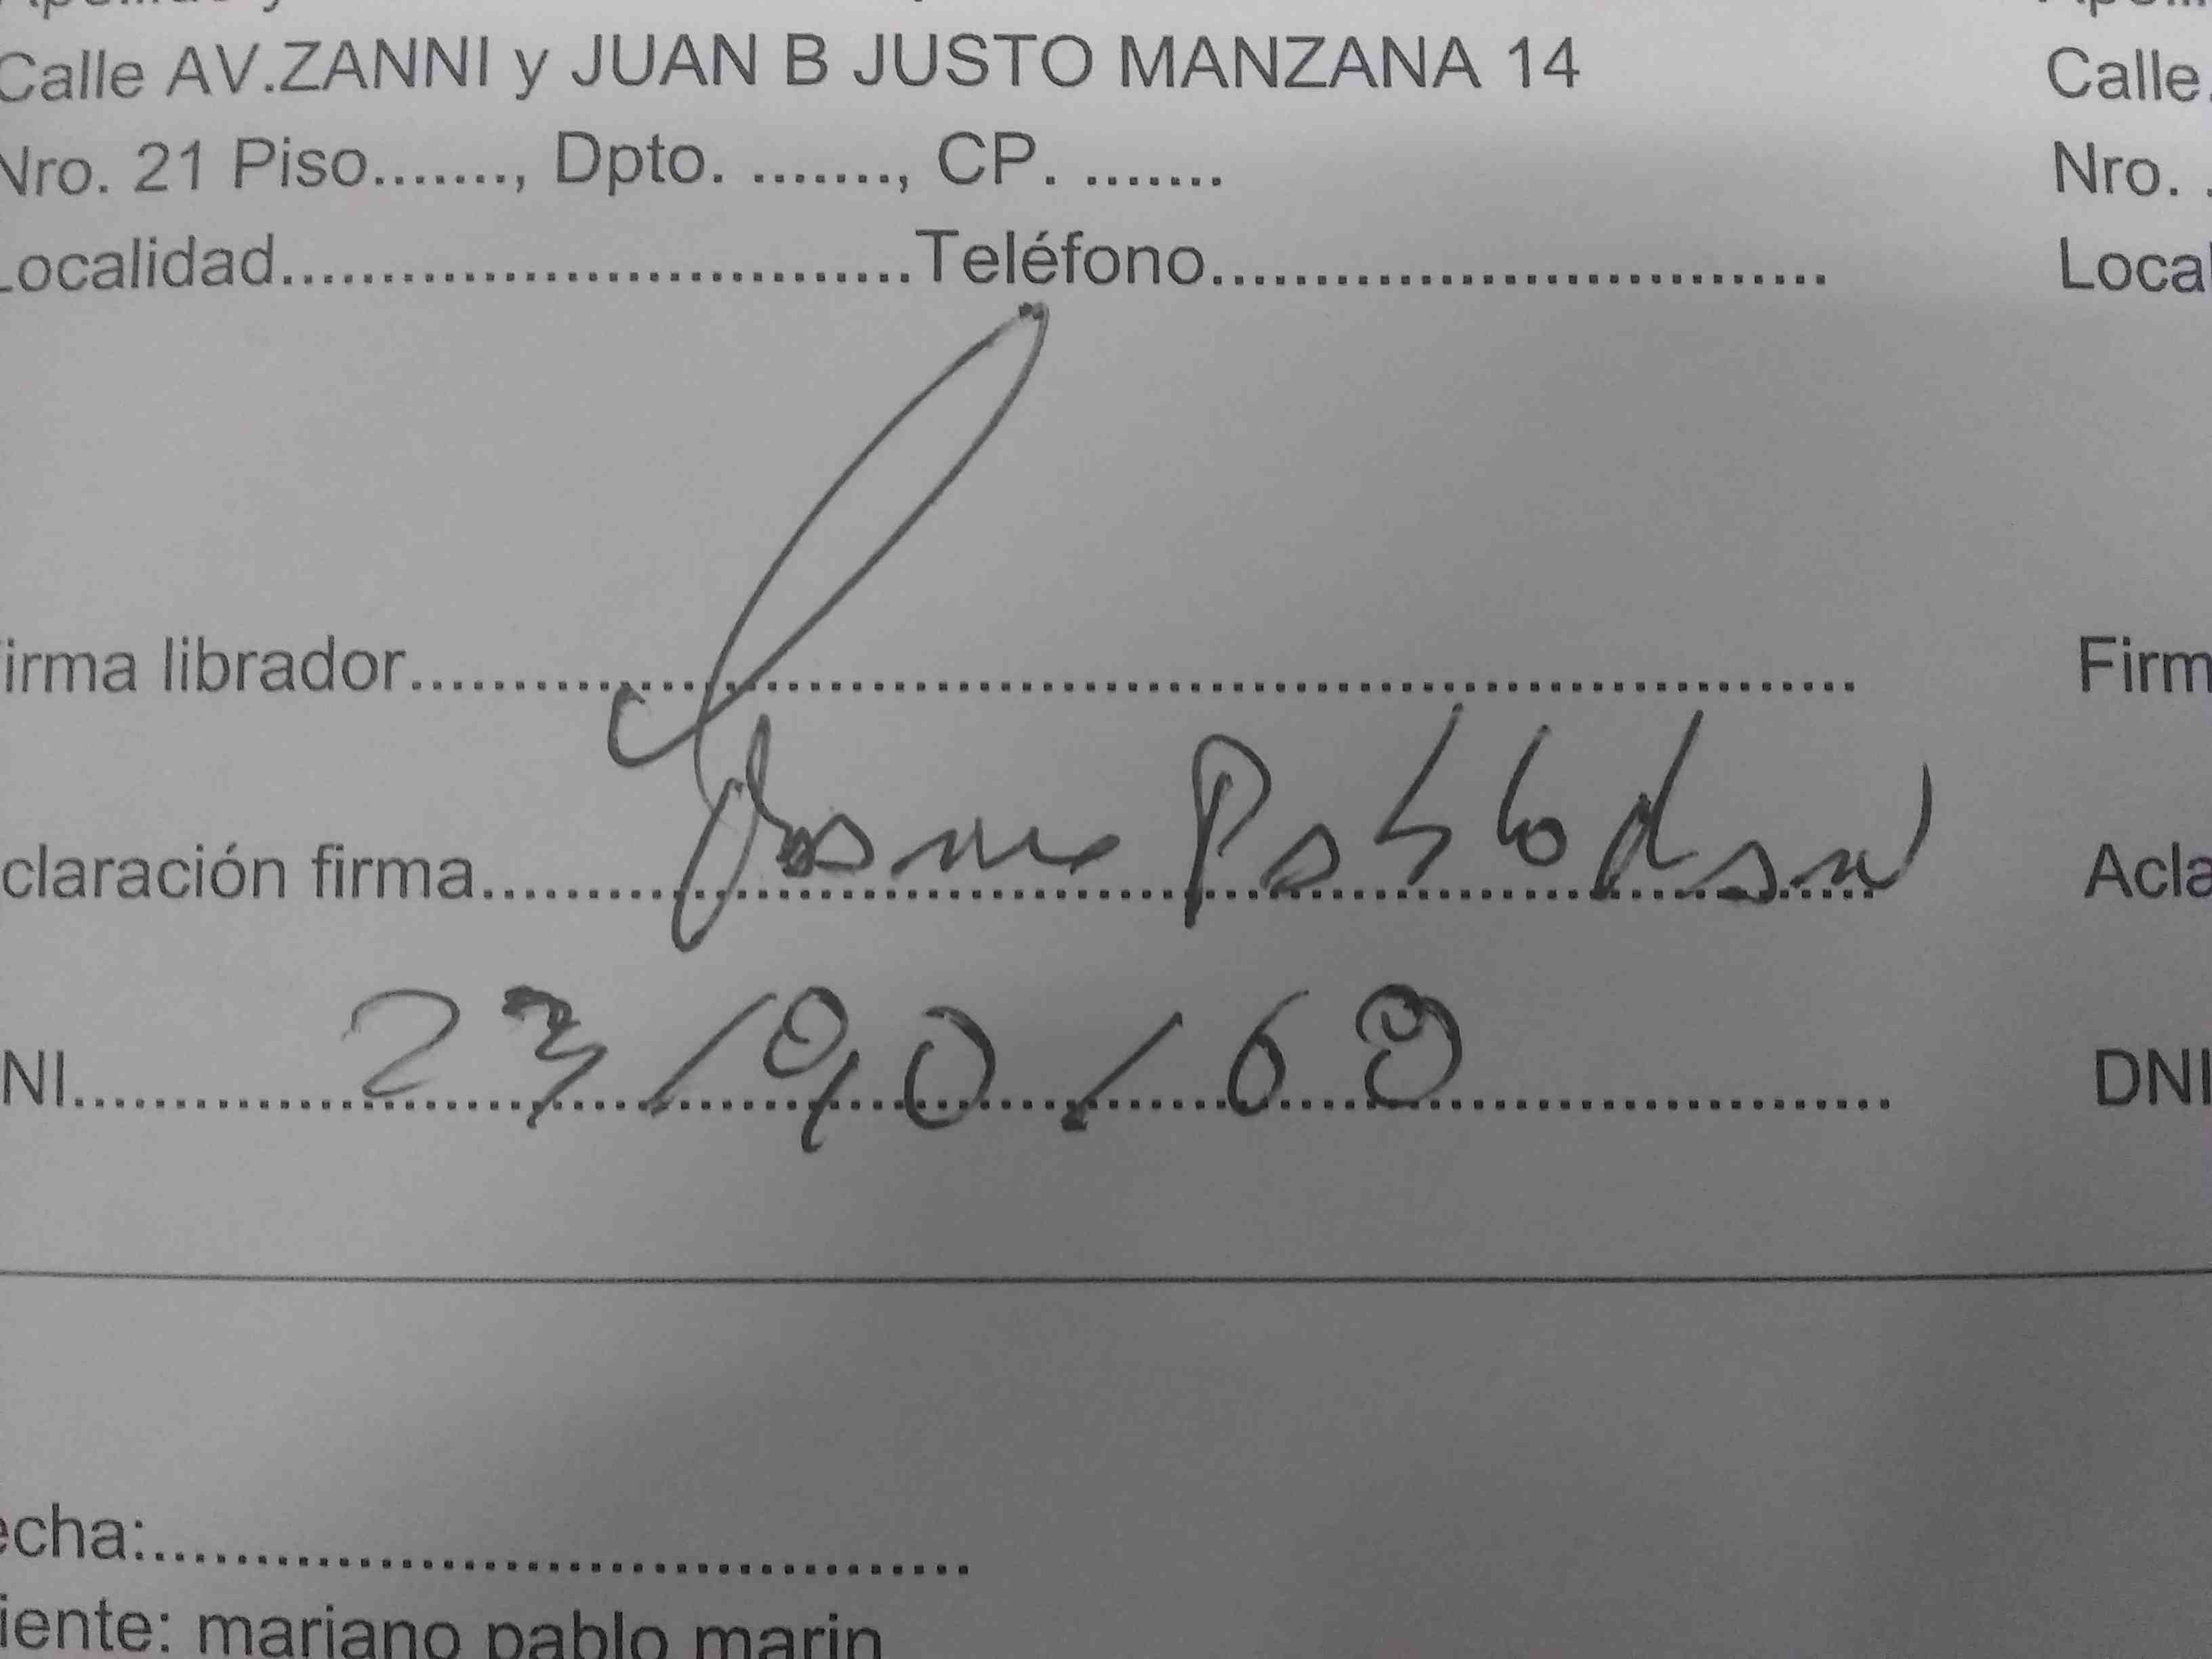 Calle AV.ZANNI y JUAN B JUSTO MANZANA 14
Nro. 21 Piso......., Dpto. ........, CP. ........
Localidad................................Teléfono...............................
irma librador........................................................................
claración firma.....................................................................
NI.......23/90/68.......
echa:.........................................
iente: mariano pablo marin
Calle.
Nro. .
Local
Firm
Acla
DNI